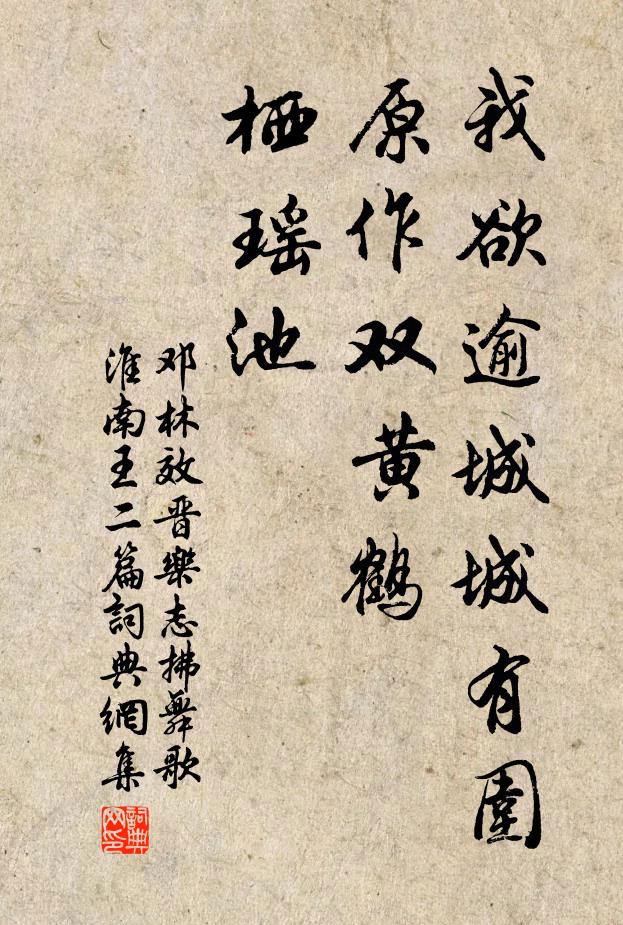 我欲逾城城有圍
原作双黄鹤
栖瑶池
邓林效晋樂志拂舞歌
淮南王二篇詞典網集
詞典网印